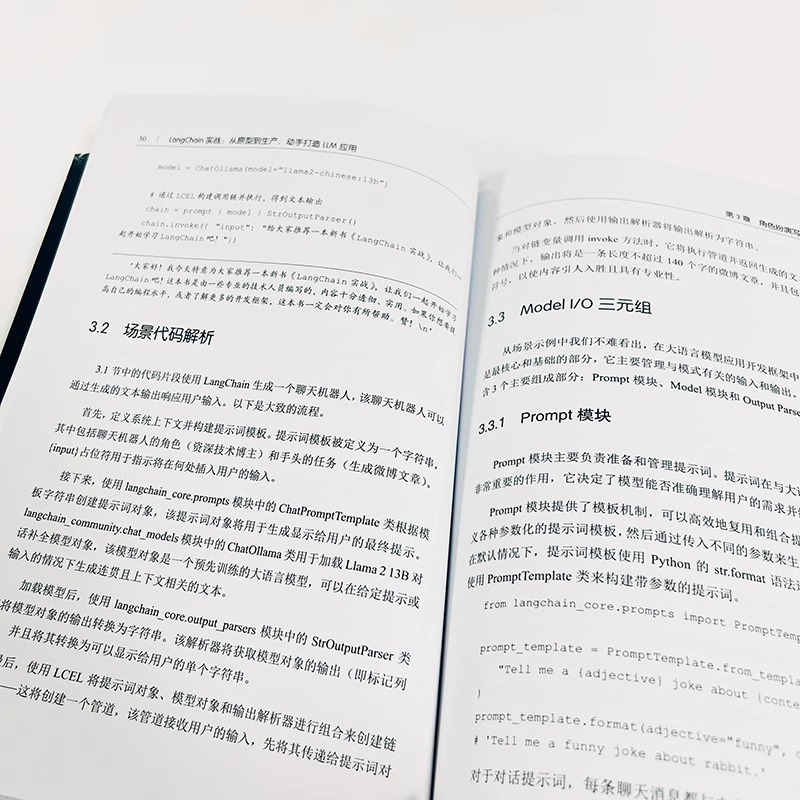 30 | LangChain 实战：从原型到生产，动手打造 LLM 应用
model = ChatOllama(model="llama2-chinese:13b")
# 通过 LCEL 构建调用链并执行，得到文本输出
chain = prompt | model | StrOutputParser()
chain.invoke({ "input": "给大家推荐一本新书《LangChain 实战》，让我们一
起开始学习 LangChain 吧！"})
'大家好！我今天特意为大家推荐一本新书《LangChain 实战》，让我们一起开始学习
LangChain 吧！这本书是由一些专业的技术人员编写的，内容十分透彻、实用。如果你想要提
高自己的编程水平，或者了解更多的开发框架，这本书一定会对你有所帮助。赞！\n'
3.2 场景代码解析
3.1 节中的代码片段使用 LangChain 生成一个聊天机器人，该聊天机器人可以
通过生成的文本输出响应用户输入。以下是大致的流程。
首先，定义系统上下文并构建提示词模板。提示词模板被定义为一个字符串，
其中包括聊天机器人的角色（资深技术博主）和手头的任务（生成微博文章）。
{input}占位符用于指示将在何处插入用户的输入。
接下来，使用 langchain_core.prompts 模块中的 ChatPromptTemplate 类根据模
板字符串创建提示词对象，该提示词对象将用于生成显示给用户的最终提示。
langchain_community.chat_models 模块中的 ChatOllama 类用于加载 Llama 2 13B 对
话补全模型对象，该模型对象是一个预先训练的大语言模型，可以在给定提示或
输入的情况下生成连贯且上下文相关的文本。
加载模型后，使用 langchain_core.output_parsers 模块中的 StrOutputParser 类
将模型对象的输出转换为字符串。该解析器将获取模型对象的输出（即标记列
并且将其转换为可以显示给用户的单个字符串。
最后，使用 LCEL 将提示词对象、模型对象和输出解析器进行组合来创建链
——这将创建一个管道，该管道接收用户的输入，先将其传递给提示词对
第 3 章 角色扮演写
象和模型对象，然后使用输出解析器将输出解析为字符串。
当对链变量调用 invoke 方法时，它将执行管道并返回生成的文
种情况下，输出将是一条长度不超过 140 个字的微博文章，并且包
符号，以使内容引人入胜且具有专业性。
3.3 Model I/O 三元组
从场景示例中我们不难看出，在大语言模型应用开发框架中
是最核心和基础的部分，它主要管理与模式有关的输入和输出。
含 3 个主要组成部分：Prompt 模块、Model 模块和 Output Parser
3.3.1 Prompt 模块
Prompt 模块主要负责准备和管理提示词。提示词在与大
非常重要的作用，它决定了模型能否准确理解用户的需求并
Prompt 模块提供了模板机制，可以高效地复用和组合提
义各种参数化的提示词模板，然后通过传入不同的参数来生
在默认情况下，提示词模板使用 Python 的 str.format 语法
使用 PromptTemplate 类来构建带参数的提示词。
from langchain_core.prompts import PromptTemp
prompt_template = PromptTemplate.from_templa
"Tell me a {adjective} joke about {conte
)
prompt_template.format(adjective="funny", c
# 'Tell me a funny joke about rabbit.'
对于对话提示词，每条聊天消息都与